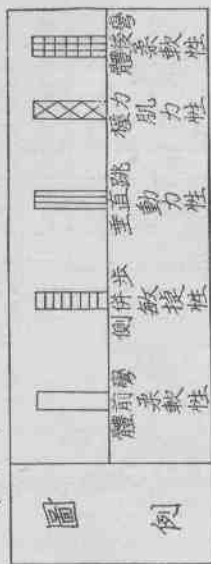 圖例
體前彎
柔軟性
側併步
敏捷性
垂直跳
動力性
握力
肌力性
體後彎
柔軟性